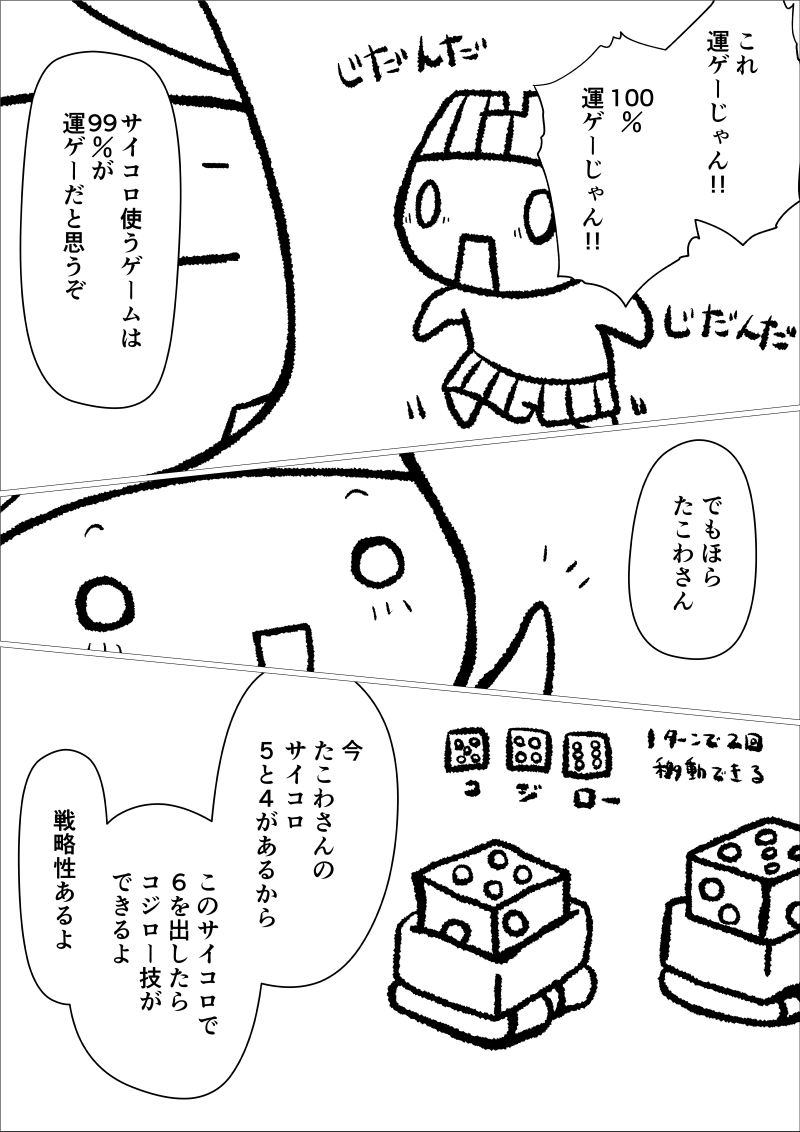 これ
運ゲーじゃん!!
100%
運ゲーじゃん!!
じだんだ
じだんだ
サイコロ使うゲームは
99%が
運ゲーだと思うぞ
でもほら
たこわさん
1ターンで2回
移動できる
コ ジ ロー
今
たこわさんの
サイコロ
5と4があるから
このサイコロで
6を出したら
コジロー技が
できるよ
戦略性あるよ